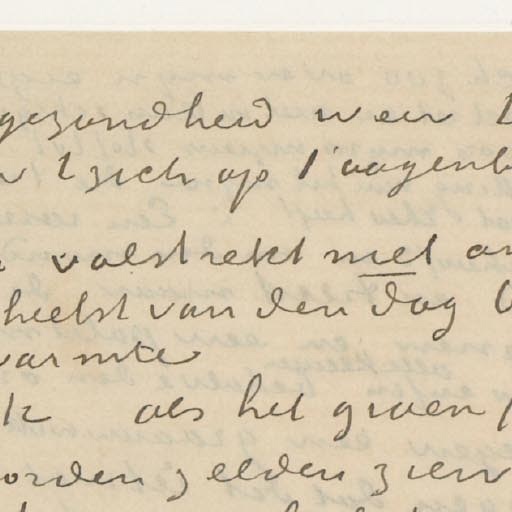 gezondheid weer
zich op 't oogenb
volstrekt niet
heetst van den dag
warmte
als het groen
orden zelden zien